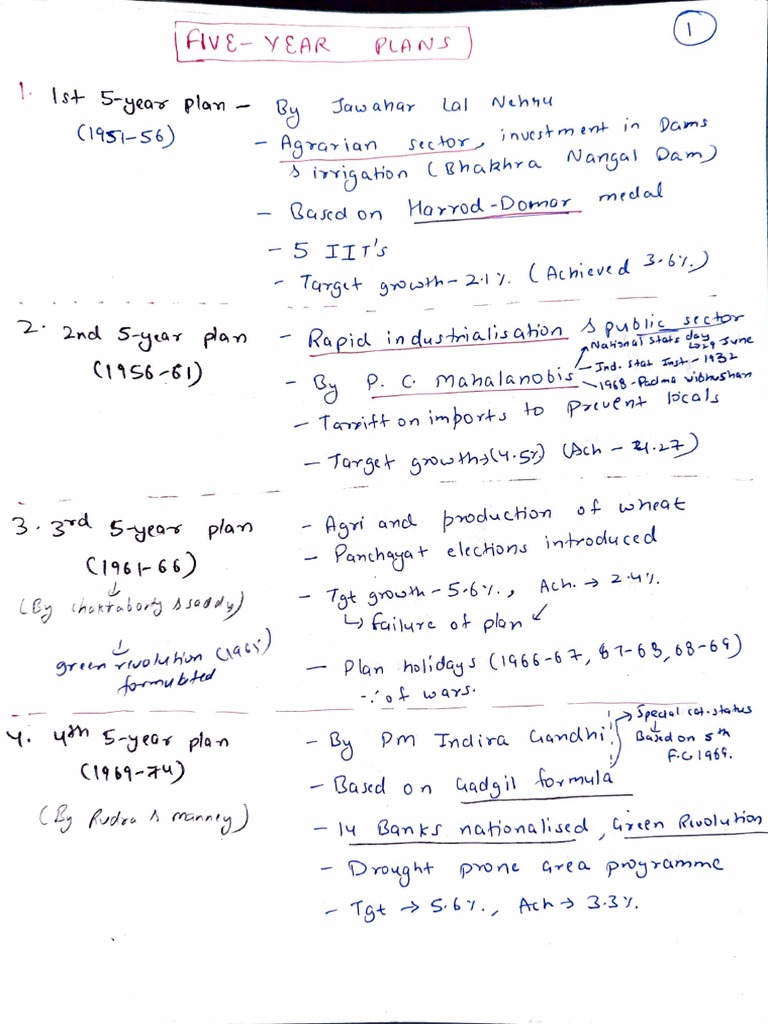 FIVE-YEAR PLANS
1
1. 1st 5-year plan - By Jawahar Lal Nehru
(1951-56)
- Agrarian sector, investment in Dams
& irrigation (Bhakhra Nangal Dam)
- Based on Harrod-Domar medal
- 5 IIT's
- Target growth - 2.1%. (Achieved 3.6%.)
2. 2nd 5-year plan - Rapid industrialisation & public sector
(1956-61)
National Stats day
↳ 29 June
- By P. C. Mahalanobis
- Ind. Stat Inst - 1932
- 1968 - Padma Vibhushan
- Tarrift on imports to prevent locals
- Target growth → (4.5%) (Ach - 4.27)
3. 3rd 5-year plan - Agri and production of wheat
(1961-66)
- Panchayat elections introduced
(By chakraborty & saddy)
- Tgt growth - 5.6%., Ach. → 2.4%.
↳ failure of plan ↙
green rivolution (1965)
formulated
- Plan holidays (1966-67, 67-68, 68-69)
∵ of wars.
4. 4th 5-year plan - By PM Indira Gandhi
(1969-74)
→ Special cat. status
↓
Based on 5th
F.C 1969.
- Based on Gadgil formula
(By Rudra & manney)
- 14 Banks nationalised, Green Rivolution
- Drought prone area programme
- Tgt → 5.6%., Ach → 3.3%.